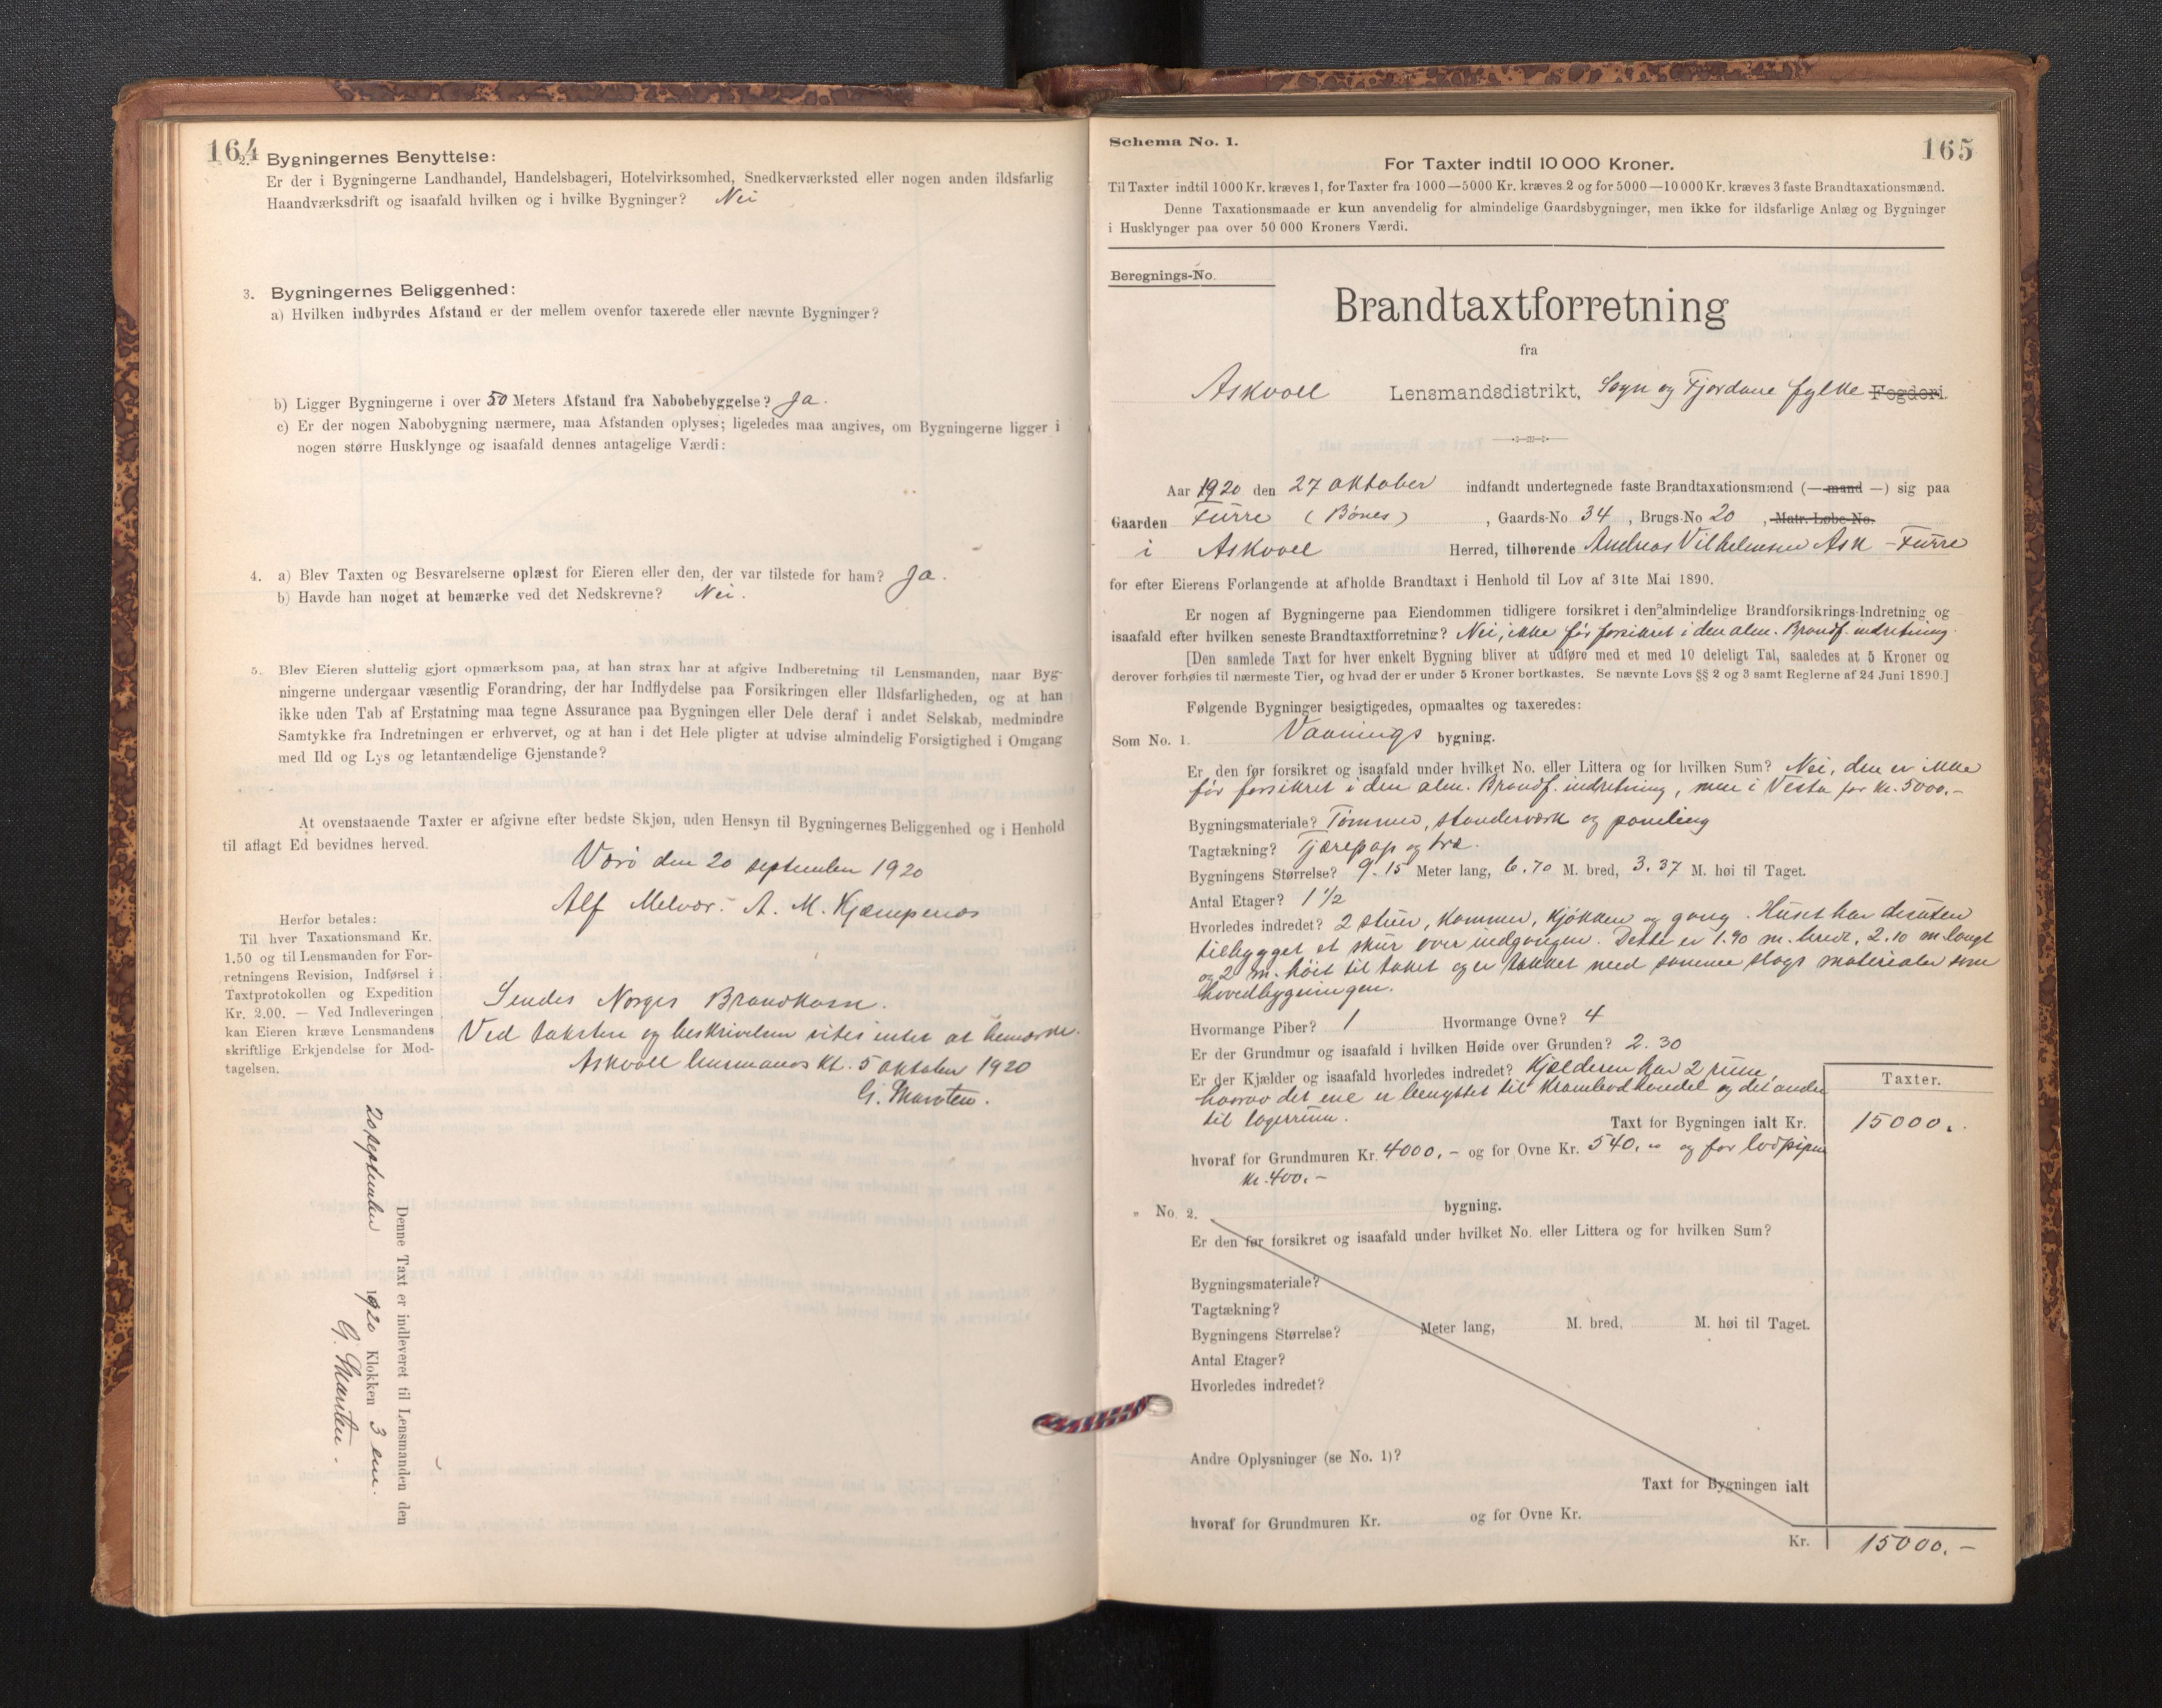 164
2. Bygningernes Benyttelse:
Er der i Bygningerne Landhandel, Handelsbageri, Hotelvirksomhed, Snedkerværksted eller nogen anden ildsfarlig
Haandværksdrift og isaafald hvilken og i hvilke Bygninger? Nei
3. Bygningernes Beliggenhed:
a) Hvilken indbyrdes Afstand er der mellem ovenfor taxerede eller nævnte Bygninger?
b) Ligger Bygningerne i over 50 Meters Afstand fra Nabobebyggelse? Ja.
c) Er der nogen Nabobygning nærmere, maa Afstanden oplyses; ligeledes maa angives, om Bygningerne ligger i
nogen større Husklynge og isaafald dennes antagelige Værdi:
4. a) Blev Taxten og Besvarelserne oplæst for Eieren eller den, der var tilstede for ham? Ja.
b) Havde han noget at bemærke ved det Nedskrevne? Nei.
5. Blev Eieren sluttelig gjort opmærksom paa, at han strax har at afgive Indberetning til Lensmanden, naar Byg-
ningerne undergaar væsentlig Forandring, der har Indflydelse paa Forsikringen eller Ildsfarligheden, og at han
ikke uden Tab af Erstatning maa tegne Assurance paa Bygningen eller Dele deraf i andet Selskab, medmindre
Samtykke fra Indretningen er erhvervet, og at han i det Hele pligter at udvise almindelig Forsigtighed i Omgang
med Ild og Lys og letantændelige Gjenstande?
At ovenstaaende Taxter er afgivne efter bedste Skjøn, uden Hensyn til Bygningernes Beliggenhed og i Henhold
til aflagt Ed bevidnes herved.
Værö den 20 september 1920
Alf Melvær. A. M. Kjempenes
Herfor betales:
Til hver Taxationsmand Kr.
1.50 og til Lensmanden for For-
retningens Revision, Indførsel i
Taxtprotokollen og Expedition
Kr. 2.00. — Ved Indleveringen
kan Eieren kræve Lensmandens
skriftlige Erkjendelse for Mod-
tagelsen.
Sendes Norges Brandkasse.
Ved taksten og beskrivelsen vites intet at bemærke.
Askvoll lensmanskt. 5 oktober 1920
G.
Denne Taxt er indleveret til Lensmanden den
20 september 1920 Klokken 3 em.
G.
165
Schema No. 1.
For Taxter indtil 10 000 Kroner.
Til Taxter indtil 1000 Kr. kræves 1, for Taxter fra 1000—5000 Kr. kræves 2 og for 5000—10 000 Kr. kræves 3 faste Brandtaxationsmænd.
Denne Taxationsmaade er kun anvendelig for almindelige Gaardsbygninger, men ikke for ildsfarlige Anlæg og Bygninger
i Husklynger paa over 50 000 Kroners Værdi.
Beregnings-No.
Brandtaxtforretning
fra
Askvoll Lensmandsdistrikt, Sogn og Fjordane fylke Fogderi.
Aar 1920 den 27 oktober indfandt undertegnede faste Brandtaxationsmænd (— mand —) sig paa
Gaarden Furre (Bönes), Gaards-No 34, Brugs-No 20, Matr. Løbe-No.
i Askvoll Herred, tilhørende Andreas Vilhelmsen Ask - Furre
for efter Eierens Forlangende at afholde Brandtaxt i Henhold til Lov af 31te Mai 1890.
Er nogen af Bygningerne paa Eiendommen tidligere forsikret i den almindelige Brandforsikrings-Indretning og
isaafald efter hvilken seneste Brandtaxtforretning? Nei, ikke før forsikret i den alm. Brandf. indretning.
[Den samlede Taxt for hver enkelt Bygning bliver at udføre med et med 10 deleligt Tal, saaledes at 5 Kroner og
derover forhøies til nærmeste Tier, og hvad der er under 5 Kroner bortkastes. Se nævnte Lovs §§ 2 og 3 samt Reglerne af 24 Juni 1890.]
Følgende Bygninger besigtigedes, opmaaltes og taxeredes:
Som No. 1. Vaanings bygning.
Er den før forsikret og isaafald under hvilket No. eller Littera og for hvilken Sum? Nei, den er ikke
för forsikret i den alm. Brandf. indretning, men i Vesta for kr. 5000.-
Bygningsmateriale? Tömmer, stenderværk og paneling
Tagtækning? Tjærepap og træ.
Bygningens Størrelse? 9.15 Meter lang, 6.70 M. bred, 3.37 M. høi til Taget.
Antal Etager? 1 1/2
Hvorledes indredet? 2 stuer, kammer, kjökken og gang. Huset har desuten
tilbygget et skur over indgangen. Dette er 1.90 m. bredt, 2.10 m. langt
og 2 m. höit til taket og er tækket med samme slags materialer som
hovedbygningen.
Hvormange Piber? 1 Hvormange Ovne? 4
Er der Grundmur og isaafald i hvilken Høide over Grunden? 2.30
Er der Kjælder og isaafald hvorledes indredet? Kjælderen har 2 rum,
hvorav det ene er benyttet til krambodhandel og det andre
til lagerrum.
Taxter.
Taxt for Bygningen ialt Kr. 15000.-
hvoraf for Grundmuren Kr. 4000.- og for Ovne Kr. 540.- og for lodpipen
kr. 400.-
" No. 2. bygning.
Er den før forsikret og isaafald under hvilket No. eller Littera og for hvilken Sum?
Bygningsmateriale?
Tagtækning?
Bygningens Størrelse? Meter lang, M. bred, M. høi til Taget.
Antal Etager?
Hvorledes indredet?
Andre Oplysninger (se No. 1)?
Taxt for Bygningen ialt
hvoraf for Grundmuren Kr. og for Ovne Kr.
Kr. 15000.-